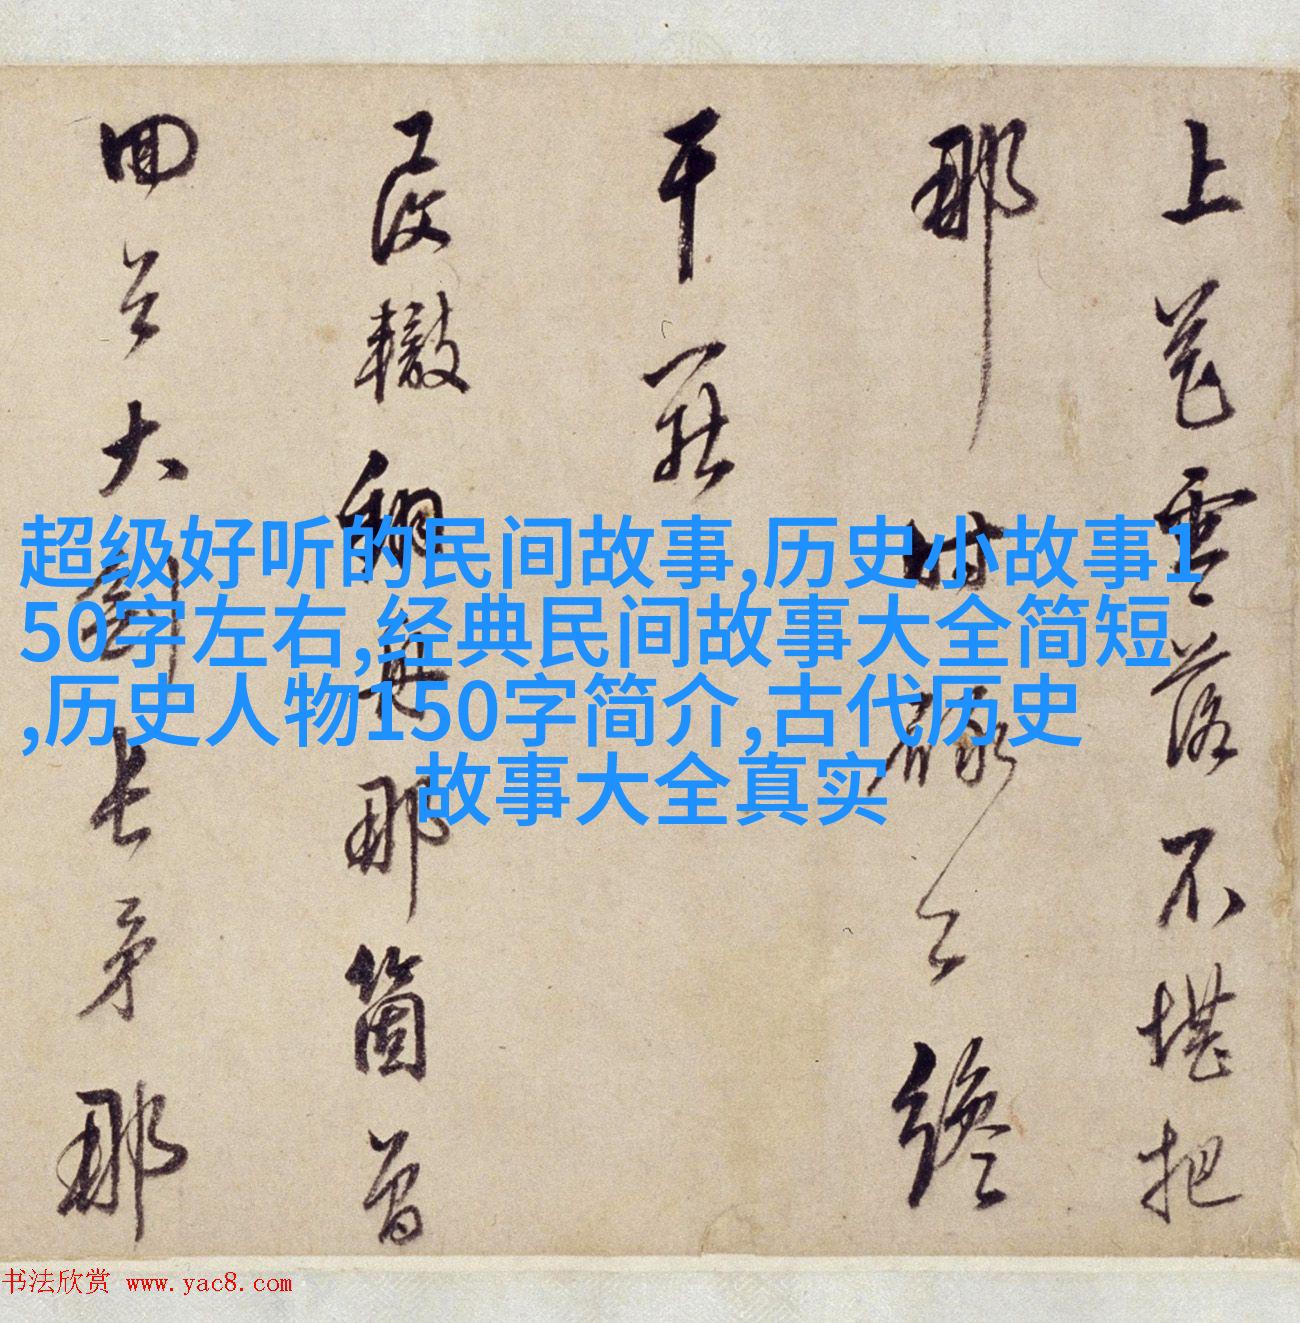 超级好听的民间故事,历史小故事1
50字左右,经典民间故事大全简短
,历史人物150字简介,古代历史
故事大全真实
上雲落不堪把
那
干
轍那箇曾
回大長矛那
书法欣赏 www.yac8.com